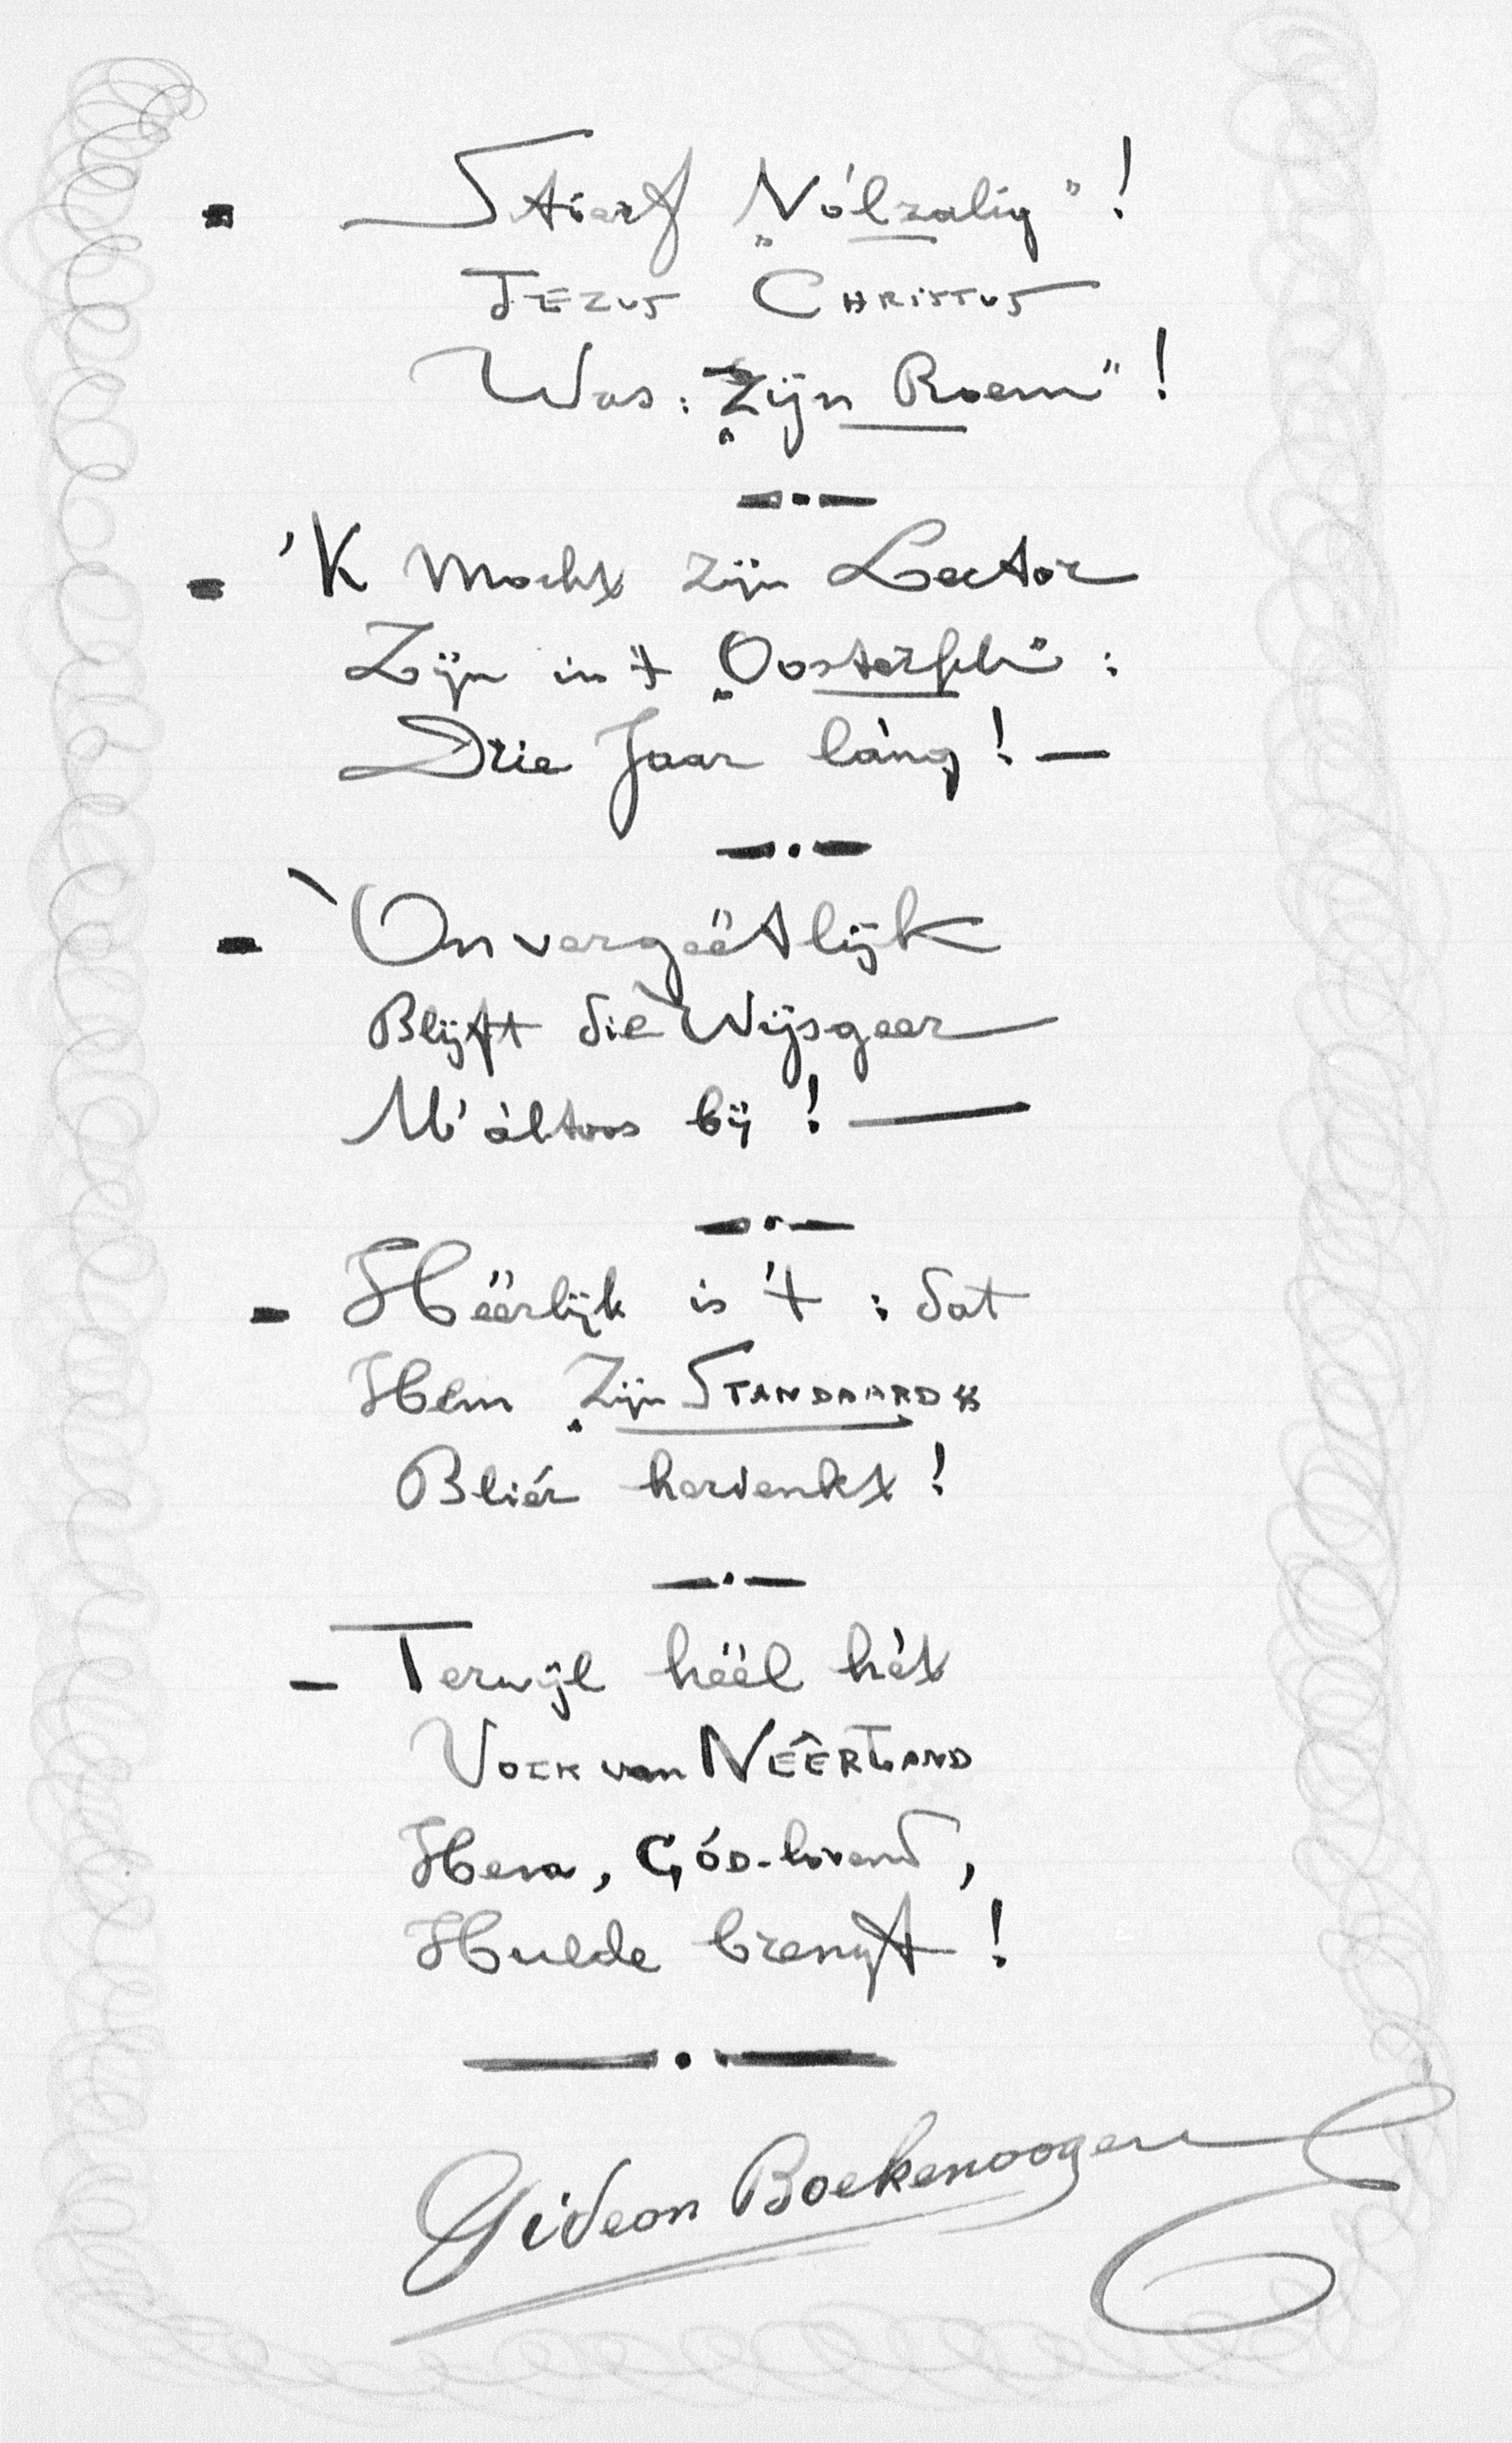 - Stierf „Vólzalig"!
JEZUS CHRISTUS
Was: „Zijn Roem"!
- 'K Mocht zijn Lector
Zijn in 't „Oosterfch":
Drie Jaar láng! —
- Onvergeëtlijk
Blijft diè Wijsgeer
M' áltoos bij! —
- Héérlijk is 't: dat
Hem „Zijn STANDAARD"
Bliér herdenkt!
- Terwijl héél hét
VOLK van NEÊRLAND
Hem, GÓD-lovend,
Hulde brengt!
Gideon Boekenoogen